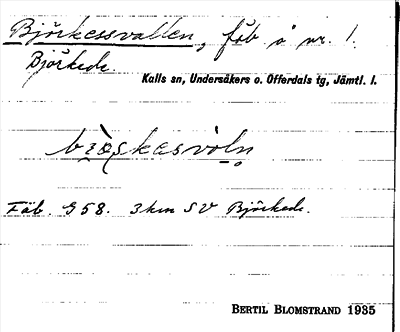 Björkessvallen, fäb å nr. 1.
Björkede.
Kalls sn, Undersåkers o. Offerdals tg, Jämtl. l.
Fäb. G58. 3 km SV Björkede.
BERTIL BLOMSTRAND 1935